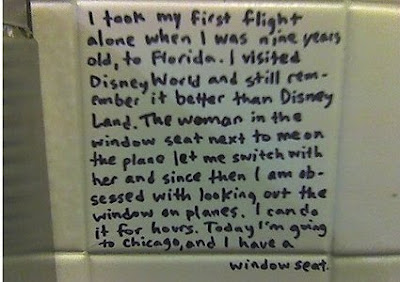 I took my first flight
alone when I was nine years
old, to Florida. I visited
Disney World and still rem-
ember it better than Disney
Land. The woman in the
window seat next to me on
the plane let me switch with
her and since then I am ob-
sessed with looking out the
window on planes. I can do
it for hours. Today I'm going
to Chicago, and I have a
window seat.